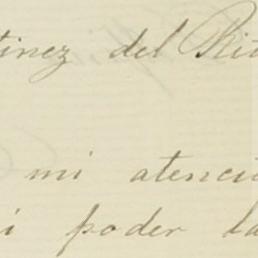 tinez del Rio
mi atenció
i poder la